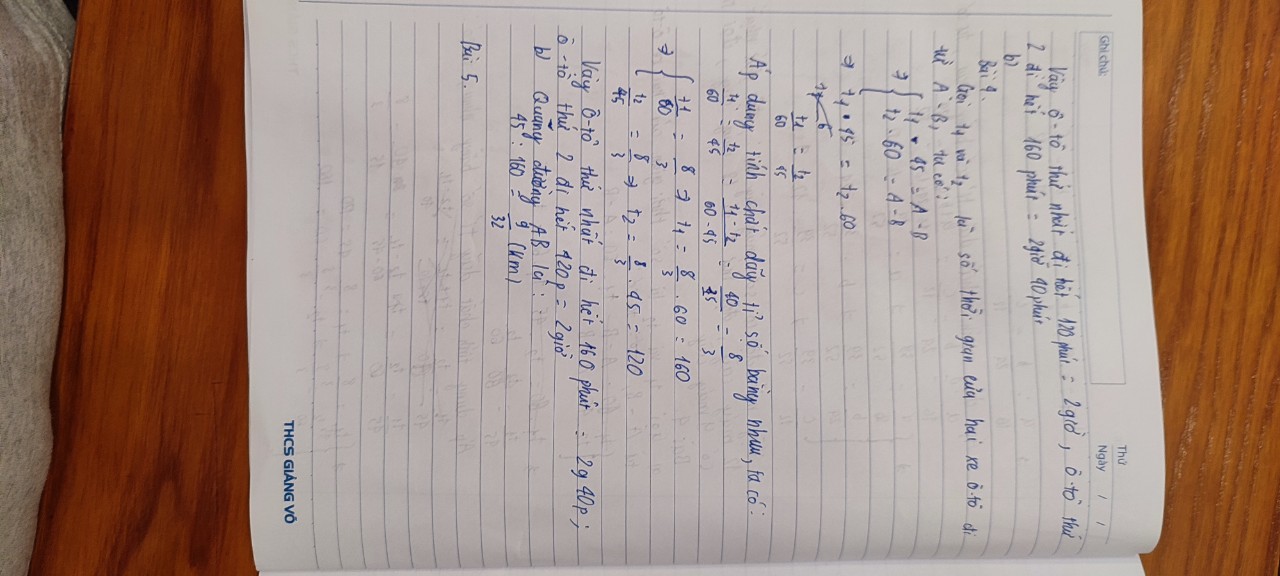 Ghi chú:
Thứ
Ngày / /
Vậy ô-tô thứ nhất đi hết 120 phút = 2 giờ, ô-tô thứ
2 đi hết 160 phút = 2 giờ 40 phút
b)
Bài 4.
Gọi t1 và t2 là số thời gian của hai xe ô-tô đi
từ A-B, ta có:
⇒ { t1 . 45 = A-B
t2 . 60 = A-B
⇒ t1 . 45 = t2 . 60
t1/60 = t2/45
Áp dụng tính chất dãy tỉ số bằng nhau, ta có:
t1/60 = t2/45 = t1-t2/60-45 = 40/15 = 8/3
⇒ { t1/60 = 8/3 ⇒ t1 = 8/3 . 60 = 160
t2/45 = 8/3 ⇒ t2 = 8/3 . 45 = 120
Vậy ô-tô thứ nhất đi hết 160 phút = 2g 40p;
ô-tô thứ 2 đi hết 120p = 2giờ
b) Quãng đường AB là:
45 : 160 = 9/32 (km)
Bài 5.
THCS GIẢNG VÕ